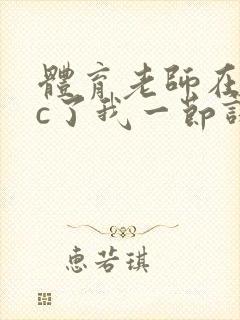 體育老師在
c了我一節課
惠若琪